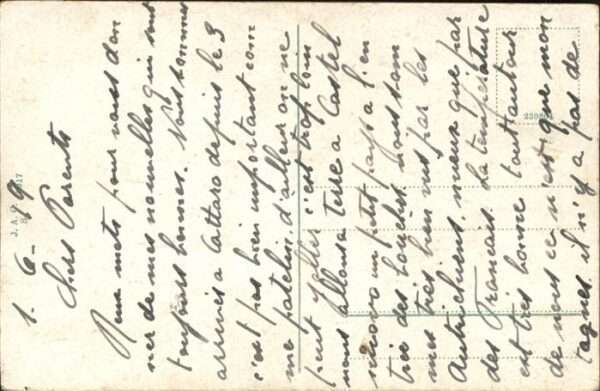 1. 6_19
Chers Parents
Deux mots pour vous don
ner de mes nouvelles qui sont
toujours bonnes. Nous sommes
arrivés a Cattaro depuis le 3
c'est pas bien important com
me patelin, d'ailleur on ne
peut y aller c'est trop loin
nous allons a terre a Castel
nuovo un petit pays a l'en
trée des bouches, nous som
mes très bien vus par les
Autrichiens mieux que par
des Français. La température
est très bonne tout autour
de nous ce n'est que mon
tagnes il n'y a pas de
239864